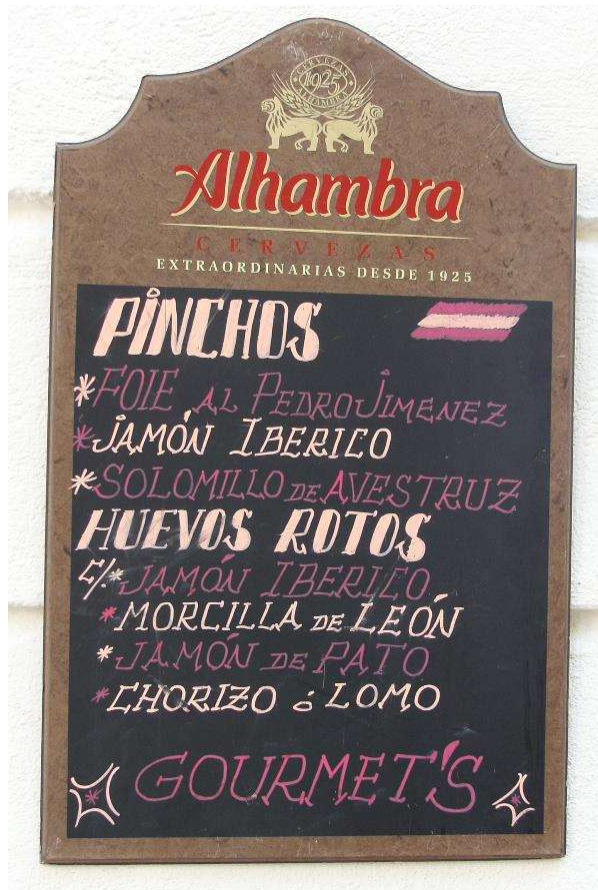 CERVEZAS
1925
ALHAMBRA
Alhambra
CERVEZAS
EXTRAORDINARIAS DESDE 1925
PINCHOS
*FOIE AL PEDRO JIMENEZ
*JAMÓN IBERICO
*SOLOMILLO DE AVESTRUZ
HUEVOS ROTOS
C/*JAMÓN IBERICO
*MORCILLA DE LEÓN
*JAMÓN DE PATO
*CHORIZO ó LOMO
*GOURMET'S*